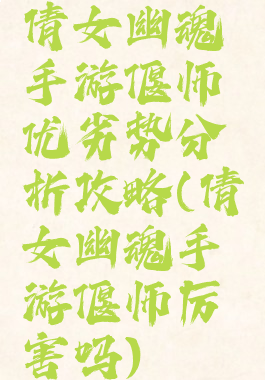 倩女幽魂
手游偃师
优劣势分
析攻略(倩
女幽魂手
游偃师厉
害吗)